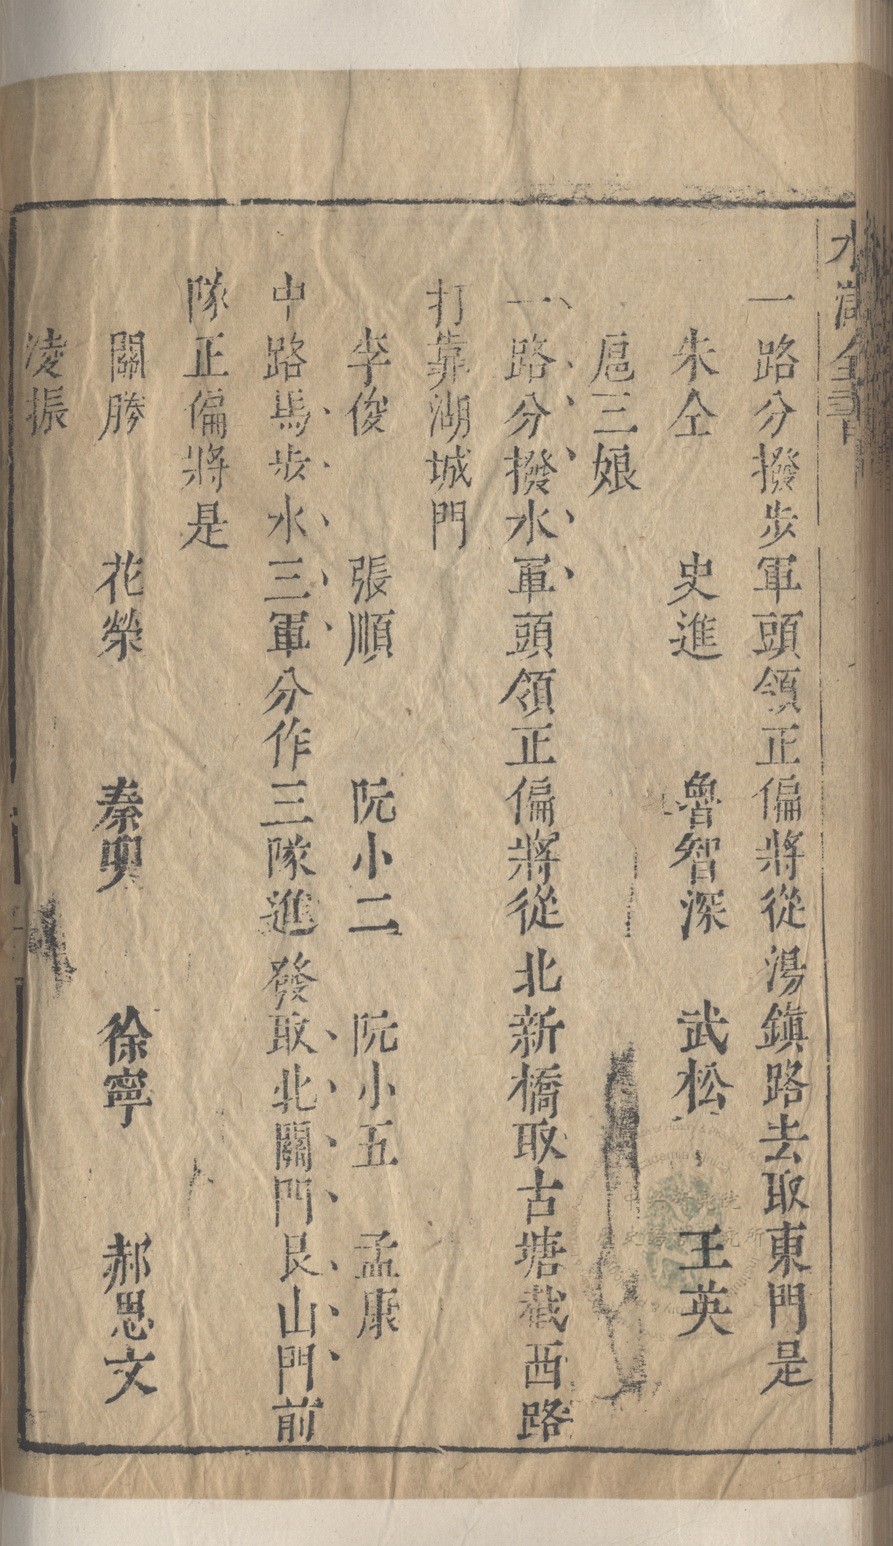 水滸全書
一路分撥步軍頭領正偏將從湯鎮路去取東門是
朱仝 史進 魯智深 武松 王英
扈三娘
一路分撥水軍頭領正偏將從北新橋取古塘截西路
打靠湖城門
李俊 張順 阮小二 阮小五 孟康
中路馬步水三軍分作三隊進發取北關門艮山門前
隊正偏將是
關勝 花榮 秦明 徐寧 郝思文
凌振